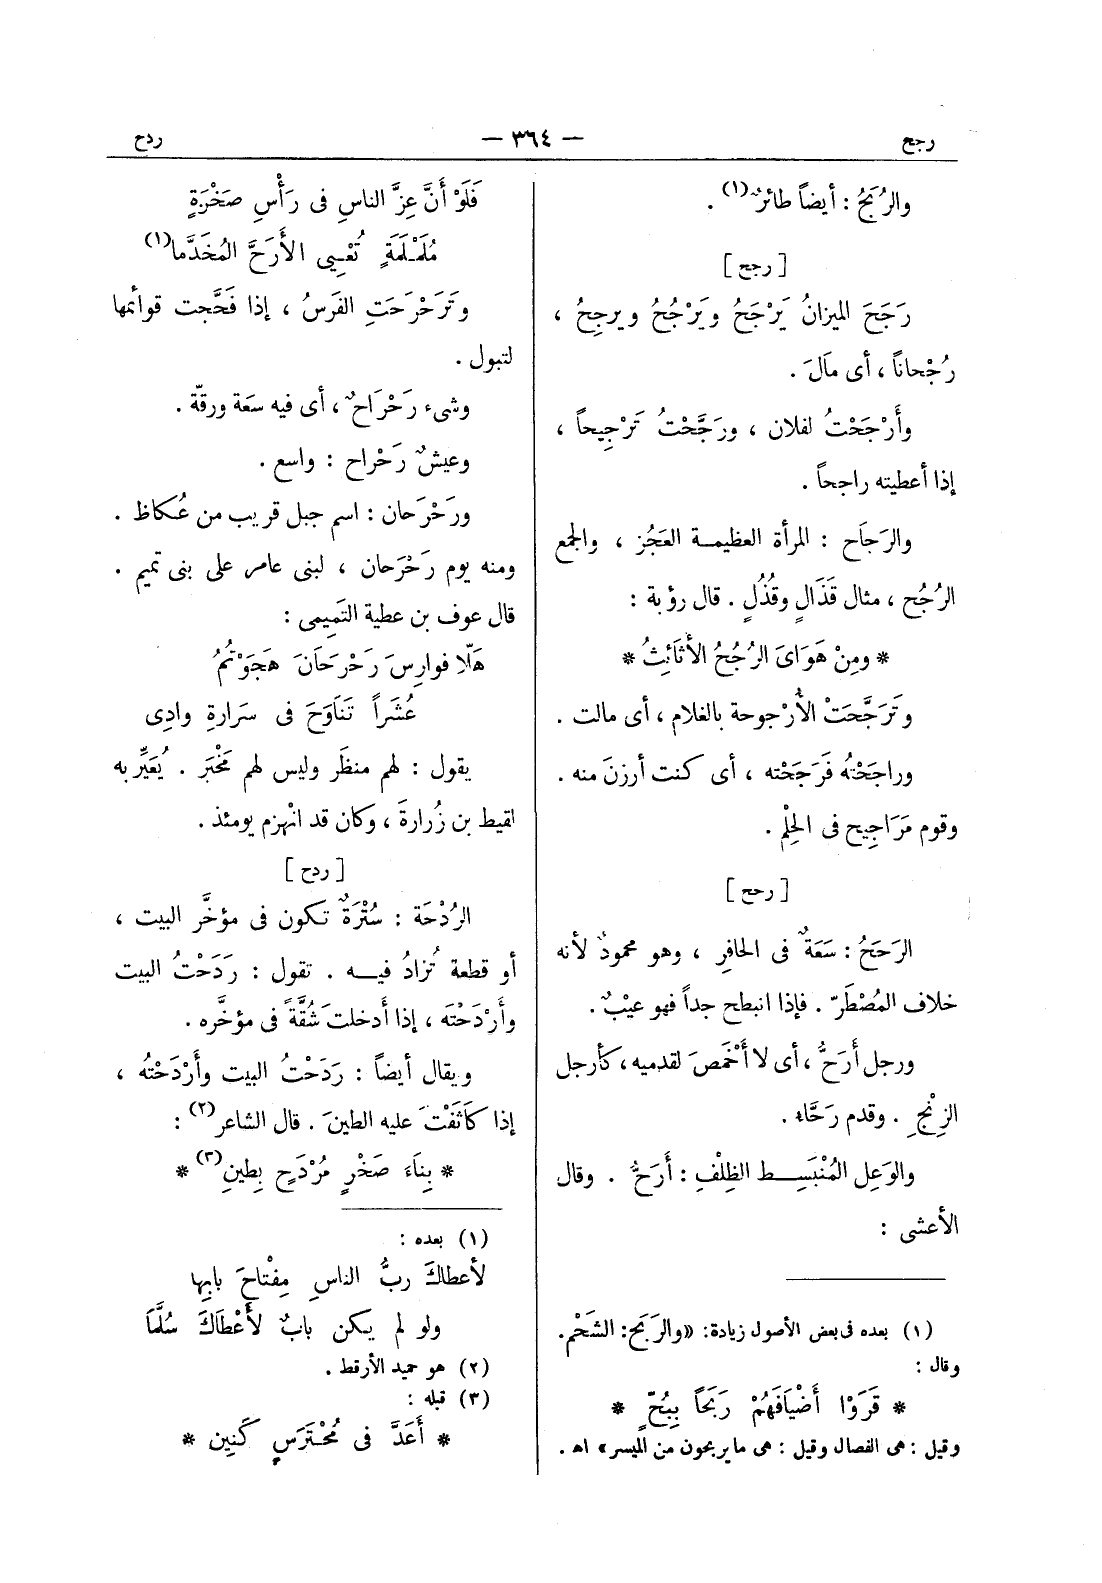 رجح — ٣٦٤ — ردح
والرُبَحُ : أيضاً طائرٌ(١) .
[ رجح ]
رَجَحَ الميزانُ يَرْجَحُ ويَرْجُحُ ويرجِحُ ،
رُجْحاناً ، أى مَالَ .
وأَرْجَحْتُ لفلان ، ورَجَّحْتُ تَرْجِيحاً ،
إذا أعطيته راجحاً .
والرَجَاح : المرأة العظيمة العَجُز ، والجمع
الرُجُح ، مثال قَذَالٍ وقُذُلٍ . قال رؤبة :
* ومِنْ هَوَاىَ الرُجُحُ الأَثَائِثُ *
وتَرَجَّحَتْ الأُرْجوحة بالغلام ، أى مالت .
وراجَحْتُه فَرَجَحْته ، أى كنت أرزنَ منه .
وقوم مَرَاجِيح فى الحِلْم .
[ رحح ]
الرَحَحُ : سَعَةٌ فى الحافِرِ ، وهو محمودٌ لأنه
خلاف المُصْطَرّ . فإذا انبطح جداً فهو عيْبٌ .
ورجل أَرَحُّ ، أى لا أَخْمَصَ لقدميه ، كأرجل
الزِنْجِ . وقدم رَحَّاء .
والوَعِل المُنْبَسِط الظِلْفِ : أَرَحُّ . وقال
الأعشى :
(١) بعده فى بعض الأصول زيادة: «والرَبَح: الشَحْم.
وقال :
* قَرَوْا أَضْيَافَهُمْ رَبَحاً بِبُحٍّ *
وقيل : هى الفصال وقيل : هى ما يربحون من الميسر» اه .
فَلَوْ أَنَّ عِزَّ الناسِ فى رَأْسِ صَخْرَةٍ
مُلَمْلَمَةٍ تُعْيِى الأَرَحَّ المُخَدَّما(١)
وتَرَحْرَحَتِ الفَرَسُ ، إذا فَحَّجت قوائمها
لتبول .
وشىء رَحْرَاحٌ ، أى فيه سَعَة ورقّة .
وعيشٌ رَحْراح : واسع .
ورَحْرَحان : اسم جبل قريب من عُكاظ .
ومنه يوم رَحْرَحان ، لبنى عامر على بنى تميم .
قال عوف بن عطية التَمِيمى :
هَلَّا فوارِسَ رَحْرَحَانَ هَجَوْتُمُ
عُشَراً تَنَاوَحَ فى سَرَارةِ وادِى
يقول : لهم منظَر وليس لهم مَخْبَر . يُعَيِّر به
لقيط بن زُرارةَ ، وكان قد انْهزم يومئذ .
[ ردح ]
الرُدْحَة : سُتْرَةٌ تكون فى مؤخَّر البيت ،
أو قطعة تُزادُ فيه . تقول : رَدَحْتُ البيت
وأَرْدَحْته ، إذا أدخلت شُقَّةً فى مؤخَّره .
ويقال أيضاً : رَدَحْتُ البيت وأَرْدَحْتُه ،
إذا كَاثَفْتَ عليه الطينَ . قال الشاعر(٢) :
* بِنَاءَ صَخْرٍ مُرْدَحٍ بِطينِ(٣) *
(١) بعده :
لأعطاكَ ربُّ الناسِ مِفْتاحَ بابِها
ولو لم يكن بابٌ لأَعْطَاكَ سُلَّمَا
(٢) هو حميد الأرقط .
(٣) قبله :
* أَعَدَّ فى مُحْتَرَسٍ كَنِين *